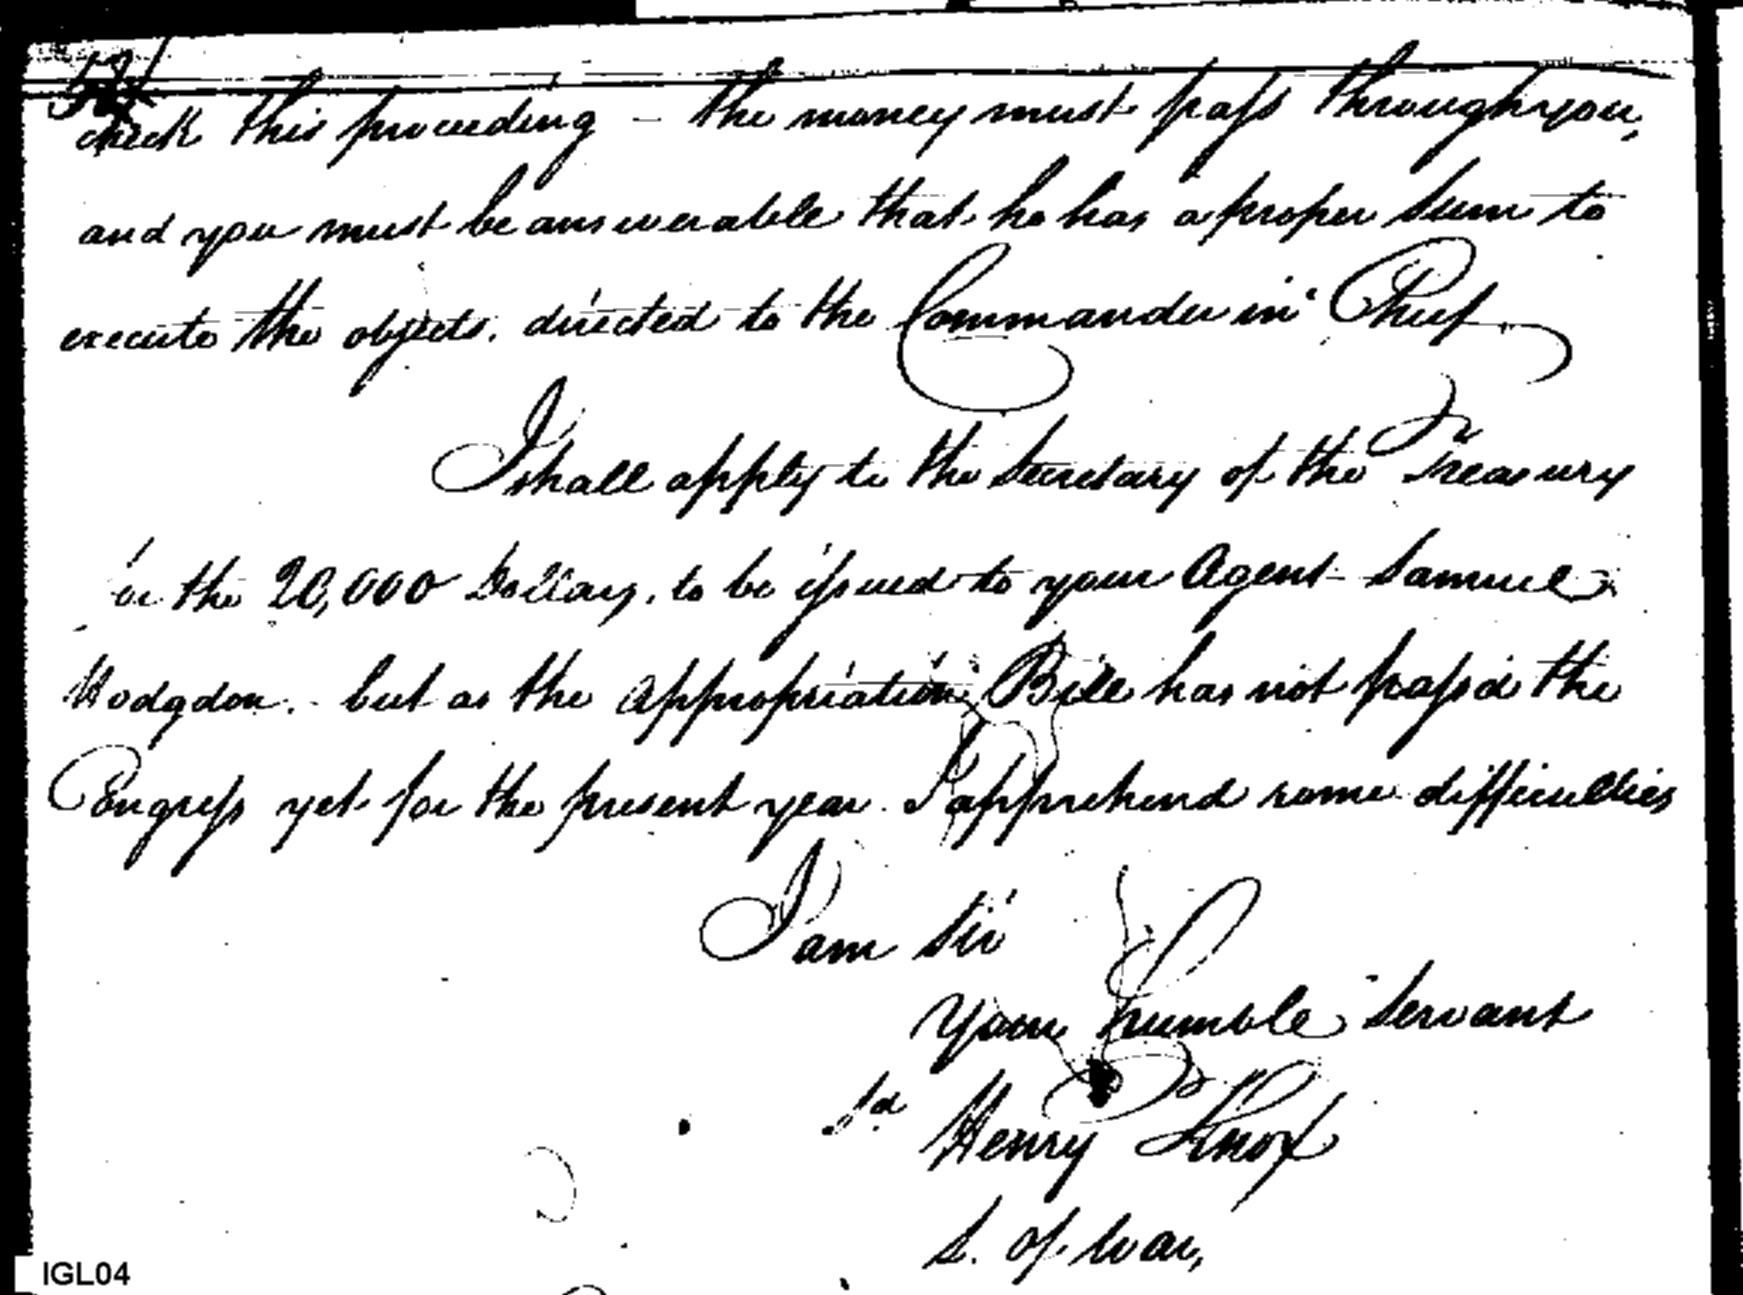 check this proceeding – the money must pass through you,
and you must be answerable that he has a proper sum to
execute the objects. directed to the Commander in Chief
I shall apply to the Secretary of the Treasury
for the 20,000 Dollars, to be issued to your Agent Samuel
Hodgdon. - but as the appropriation Bill has not pass'd the
Congress yet for the present year. I apprehend some difficulties
I am Sir
Your humble Servant
sd Henry Knox
S. of War,
IGL04